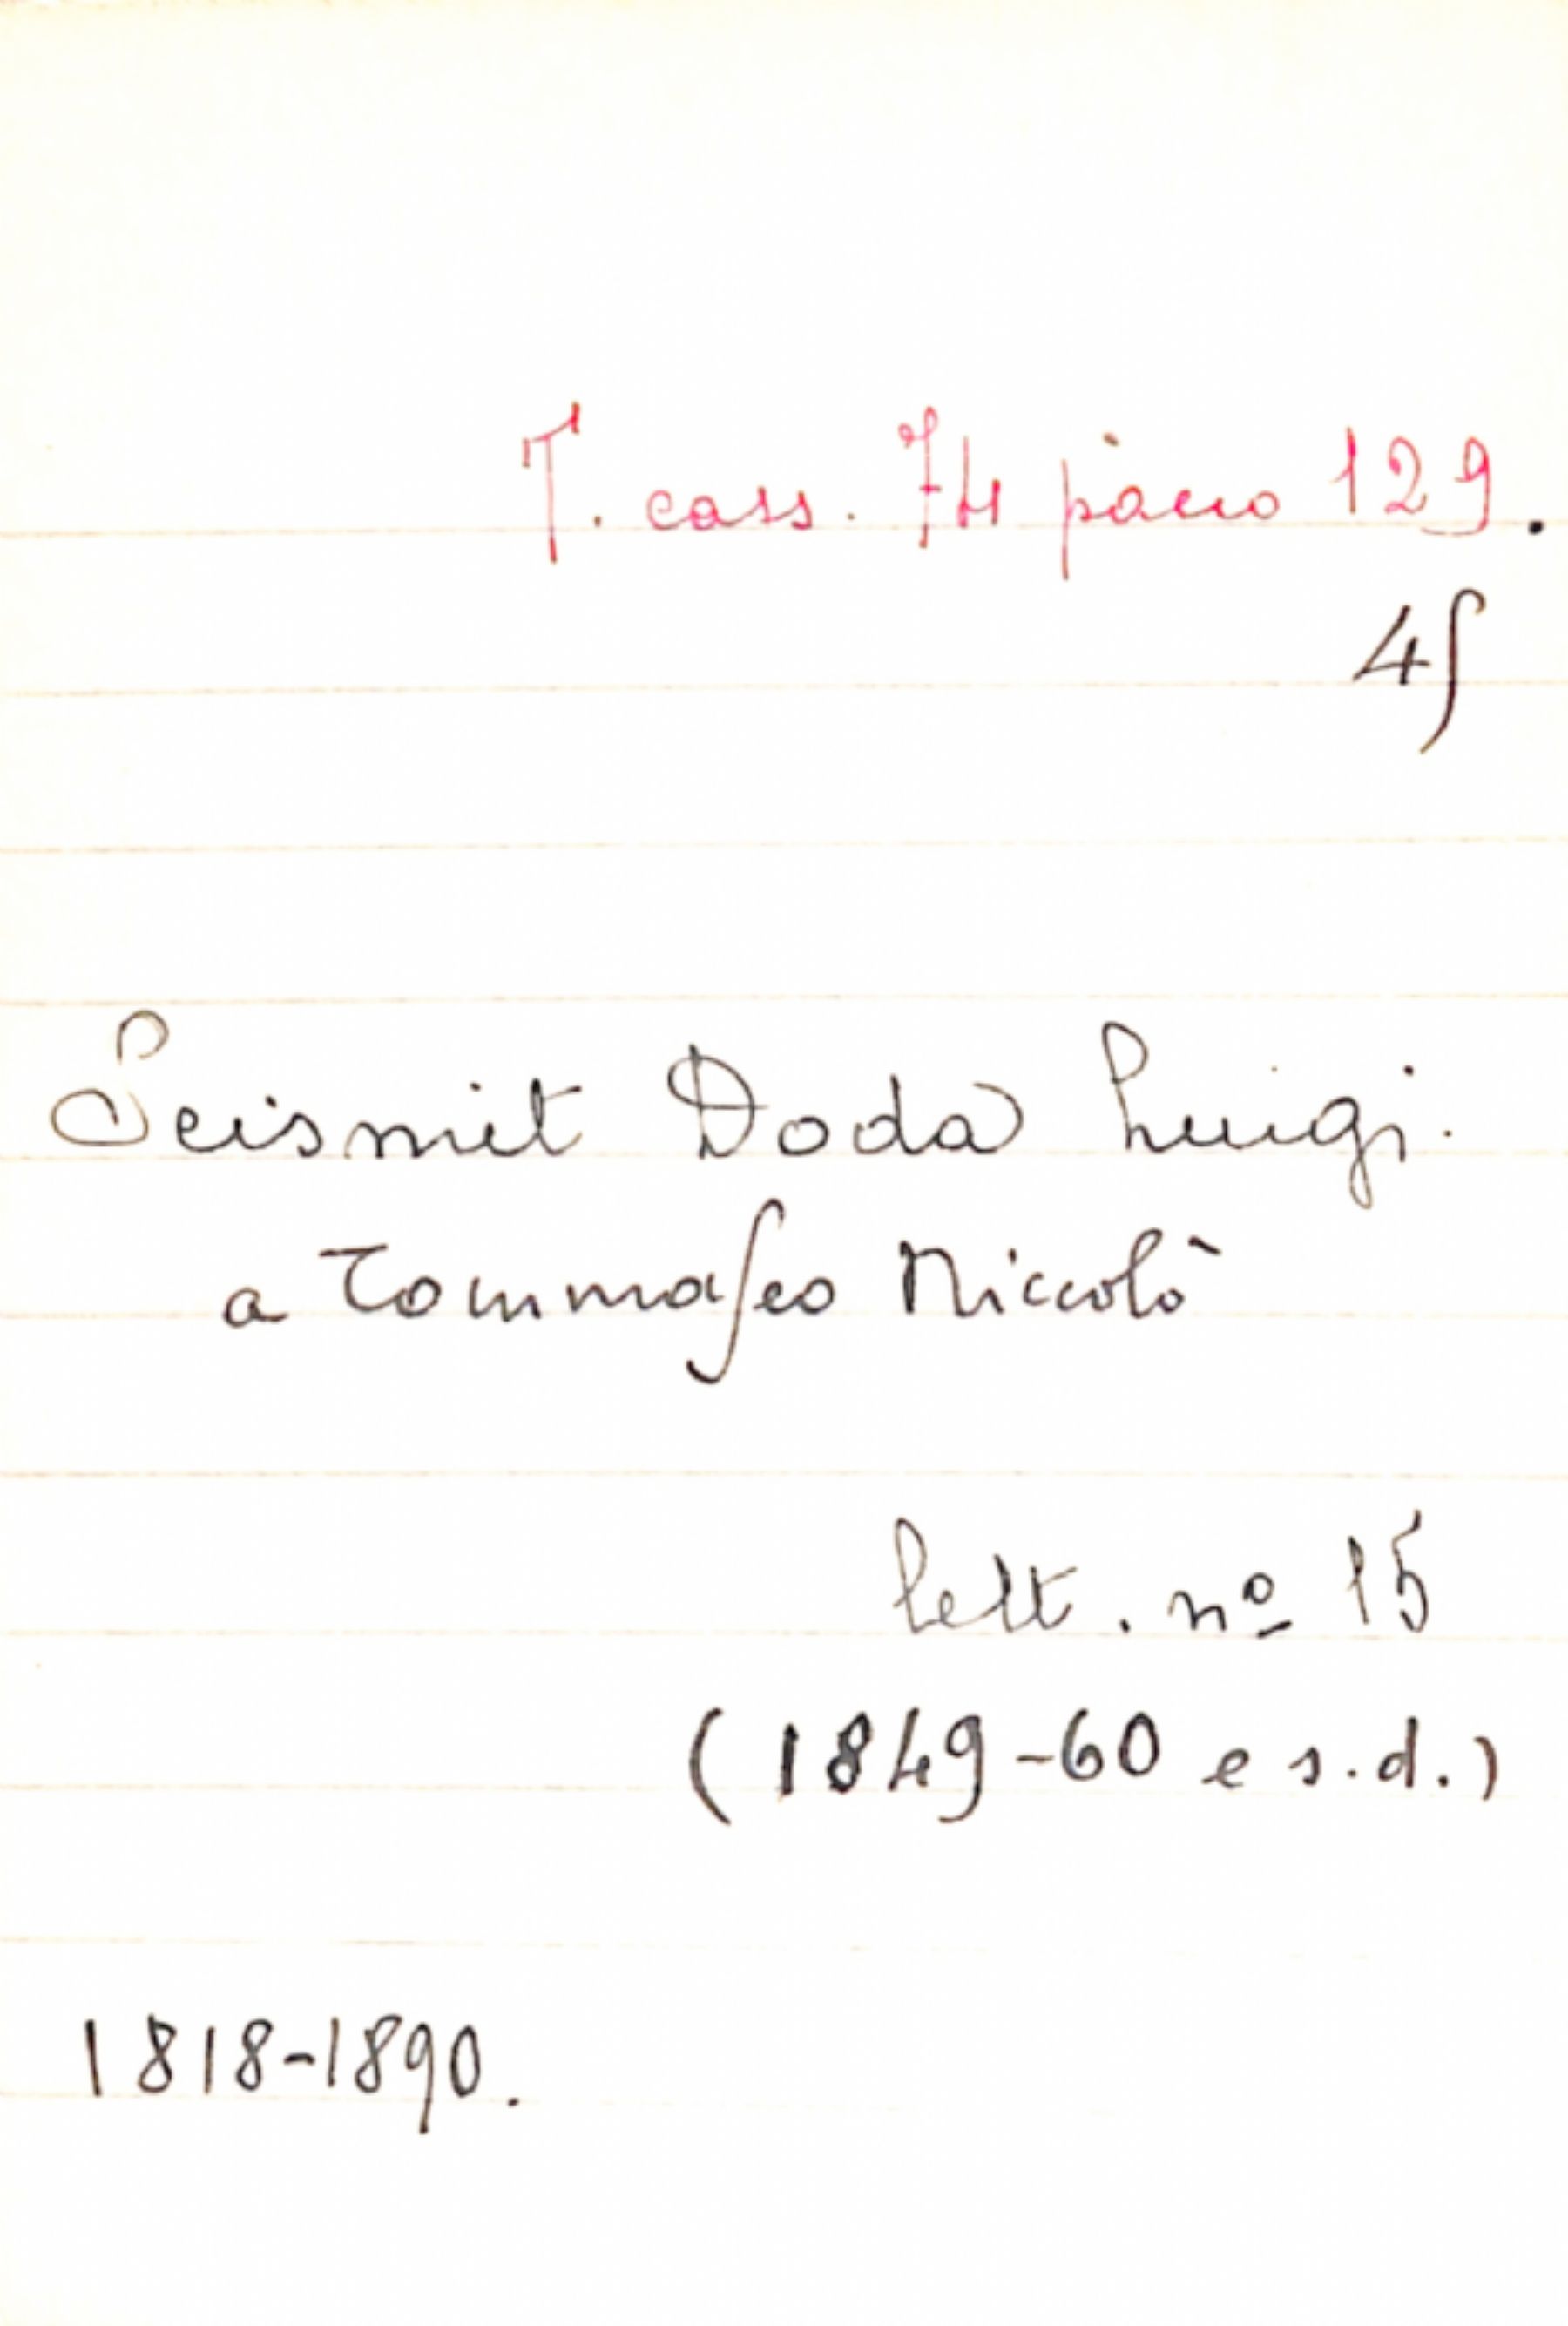 T. cass. 74 pacco 129.
45
Seismit Doda Luigi.
a Tommaseo Niccolò
lett. nº 15
(1849-60 e s.d.)
1818-1890.